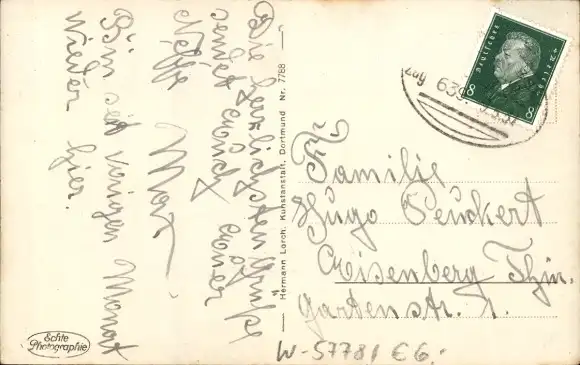 Die herzlichsten Grüße
sendet Euch Euer
Neffe
Max
Bin seit einigen Monat
wieder hier.
Echte
Photographie
Hermann Lorch, Kunstanstalt, Dortmund Nr. 7788
Deutsches Reich
8 8
Zug 639
Familie
Hugo Peuckert
Eisenberg Thür.
Gartenstr. 1.
W-57781 €6,-